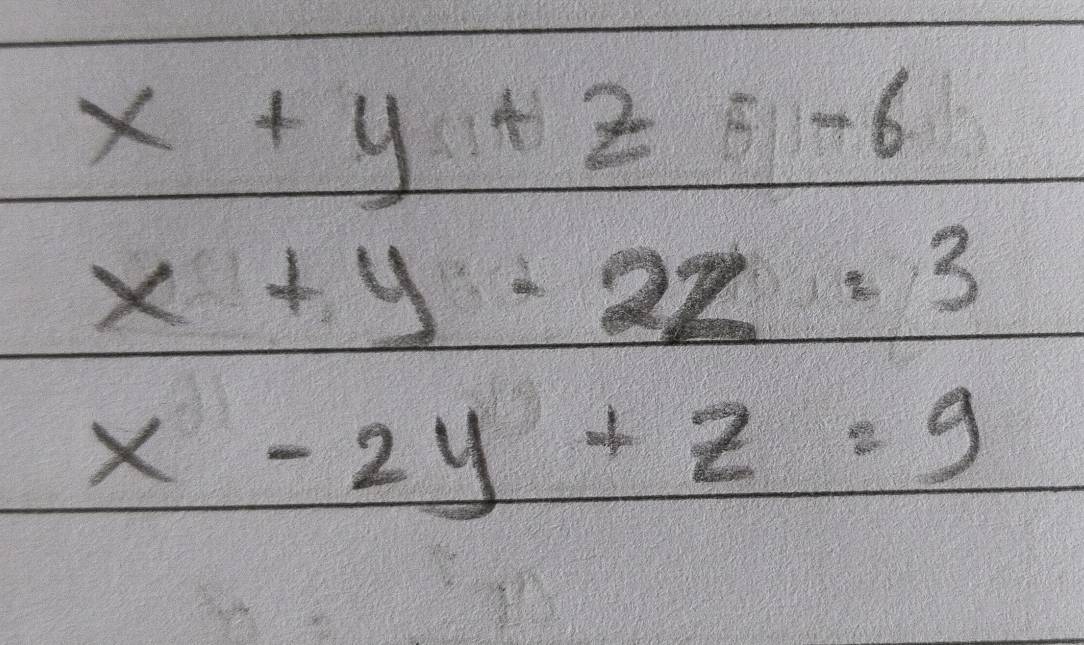 x + y + z = 6
x + y - 2z = 3
x - 2y + z = 9